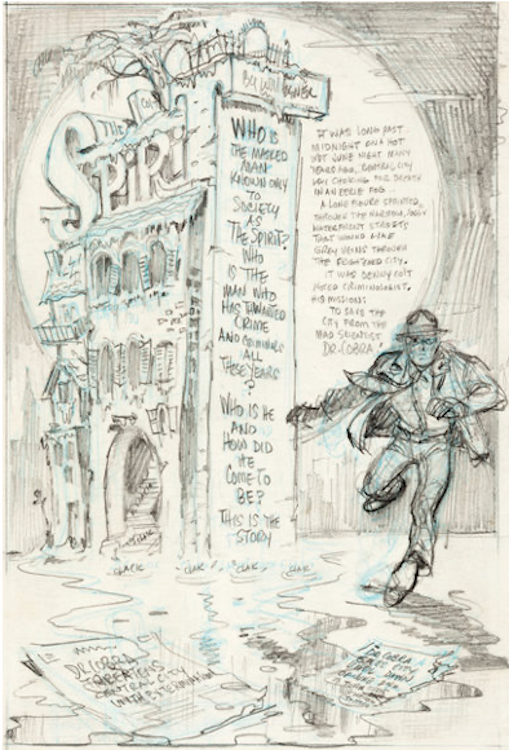 THE
SPIRIT
BY WILL EISNER
WHO IS
THE MASKED
MAN
KNOWN ONLY
TO
SOCIETY
AS
THE SPIRIT?
WHO
IS THE
MAN WHO
HAS THWARTED
CRIME
AND CRIMINALS
ALL
THESE YEARS
?
WHO IS HE
AND
HOW DID
HE
COME TO
BE?
THIS IS THE
STORY
IT WAS LONG PAST
MIDNIGHT ON A HOT
WET JUNE NIGHT MANY
YEARS AGO.. CENTRAL CITY
LAY CHOKING FOR BREATH
IN AN EERIE FOG..
A LONE FIGURE SPRINTED
THROUGH THE NARROW, FOGGY
WATERFRONT STREETS
THAT WOUND LIKE
GREY VEINS THROUGH
THE FRIGHTENED CITY.
IT WAS DENNY COLT
NOTED CRIMINOLOGIST.
HIS MISSION:
TO SAVE THE
CITY FROM THE
MAD SCIENTIST
DR. COBRA!
CLACK
CLAK
CLAK
CLAK
DR COBRA
THREATENS
CENTRAL CITY
WITH EXTERMINATION
COBRA